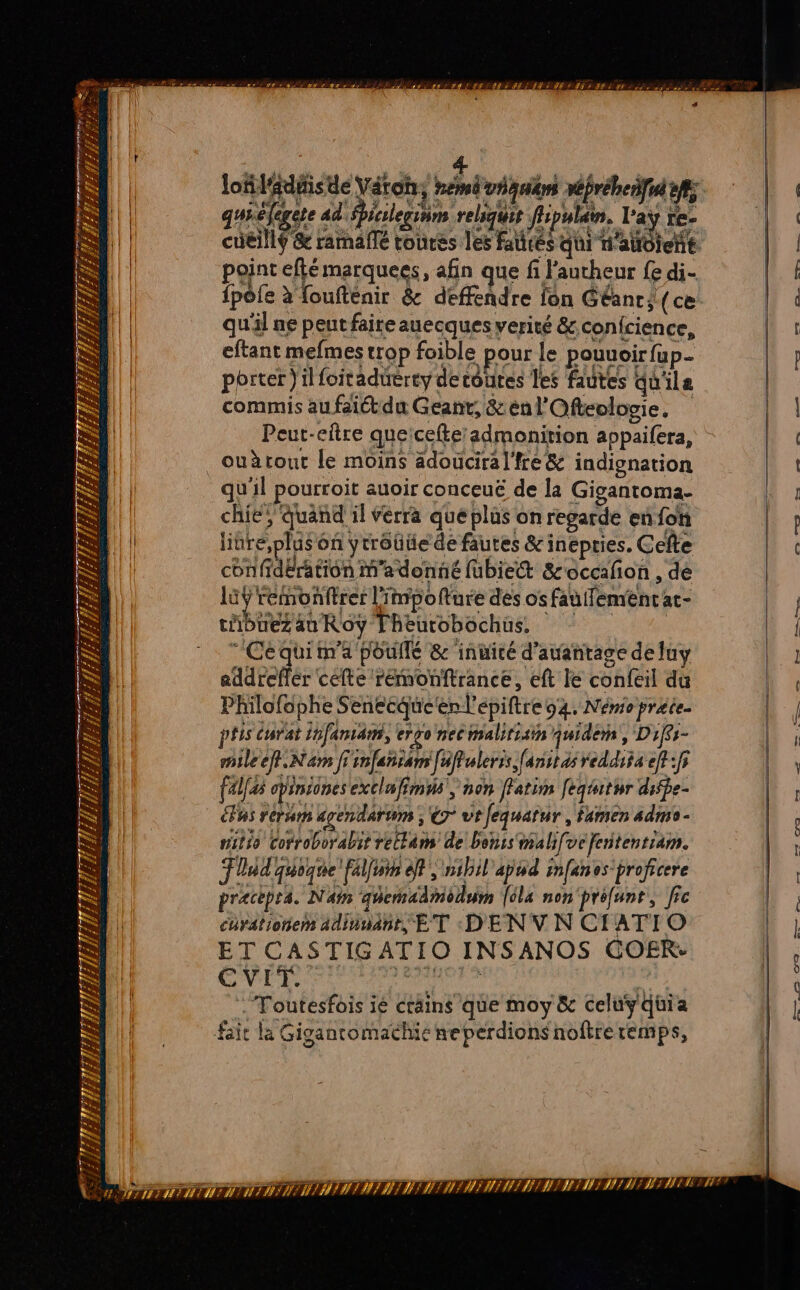 4
lon l'adüisde Varon, nemo vnquàm repréhensus est,
qui è segete ad spicilegium reliquit stipulam. I'ay re-
cueilly & ramassé toutes les fautes qui n'auoient
point esté marquees, afin que si l'autheur se di-
spose à soustenir & deffendre son Géant; (ce
qu'il ne peut faire auecques verité & conscience,
estant mesmes trop foible pour le pouuoir sup-
porter) il soit aduerty de toutes les fautes qu'il a
commis au faict du Geant, & en l'Osteologie.
Peut-estre que ceste admonition appaisera,
ou à tout le moins adoucira l'Ire & indignation
qu'il pourroit auoir conceuë de la Gigantoma-
chie, quand il verra que plus on regarde en son
liure, plus on y troüue de fautes & inepties. Ceste
consideration m'a donné subiect & occasion, de
luy remonstrer l'imposture des os faussement at-
tribuez au Roy Theutobochus.
Ce qui m'a poussé & inuité d'auantage de luy
addresser ceste remonstrance, est le conseil du
Philosophe Senecque en l'epistre 94. Nemo præce-
ptis curat insaniam, ergo nec malitiam quidem, Dissi-
mile est. Nam si insaniam sustuleris, sanitas reddita est: si
falsas opiniones exclusimus, non statim sequitur dispe-
ctus rerum agendarum; & vt sequatur, tamen admo-
nitio corroborabit rectam de bonis malisve sententiam.
Illud quoque falsum est, nihil apud insanos proficere
præcepta. Nam quemadmodum sola non prosunt, sic
curationem adiuuant, ET DENVNCIATIO
ET CASTIGATIO INSANOS COER-
CVIT.
Toutesfois ie crains que moy & celuy qui a
fait la Gigantomachie ne perdions nostre temps,